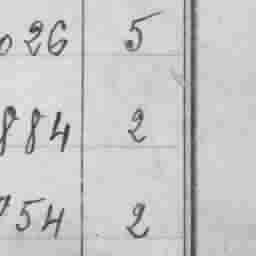 026 5
884 2
754 2